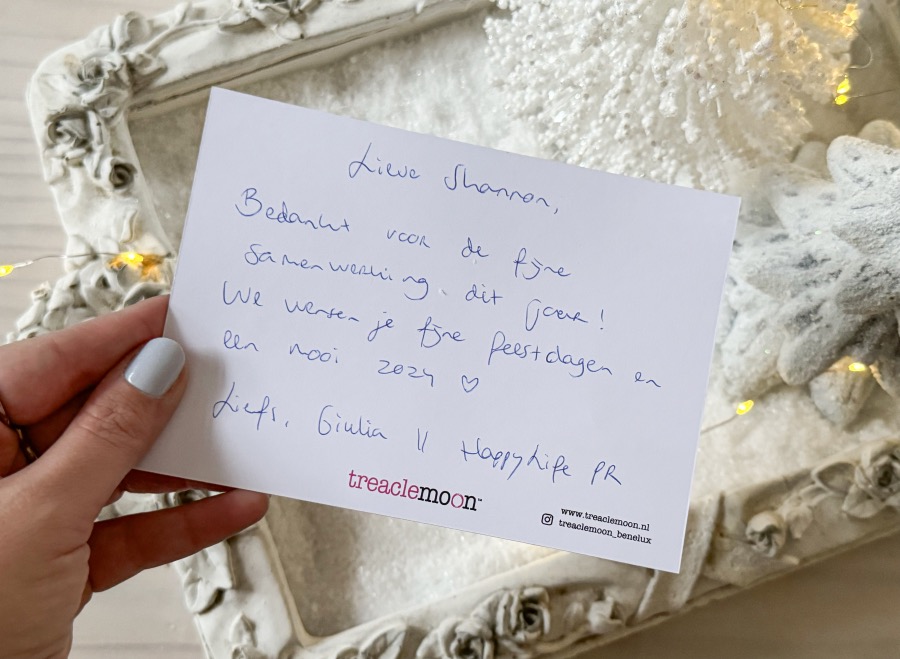 Lieve Shannon,
Bedankt voor de fijne
samenwerking dit jaar!
We wensen je fijne feestdagen en
een mooi 2024 ♡
Liefs, Giulia || HappyLife PR
treaclemoon™
www.treaclemoon.nl
treaclemoon_benelux